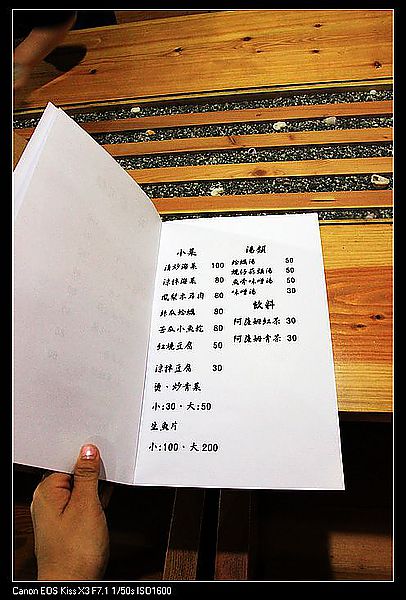 小菜
清炒海菜 100
涼拌海菜 80
鳳梨木耳肉 80
絲瓜蛤蠣 80
苦瓜小魚乾 80
紅燒豆腐 50
涼拌豆腐 30
燙、炒青菜
小:30、大:50
生魚片
小:100、大200
湯類
蛤蠣湯 50
魚骨味噌湯 50
味噌湯 30
飲料
阿薩姆紅茶 30
阿薩姆青茶 30
Canon EOS Kiss X3 F7.1 1/50s ISO1600